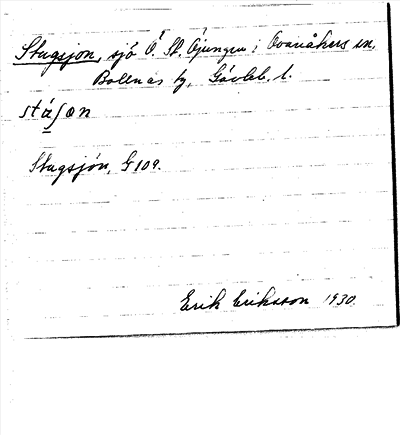 Stugsjon, sjö Ö. St. Öjungen i Ovanåkers sn,
Bollnäs tg, Gävleb. l.
stáʃɶn
Stugsjön, G 109.
Erik Eriksson 1930.